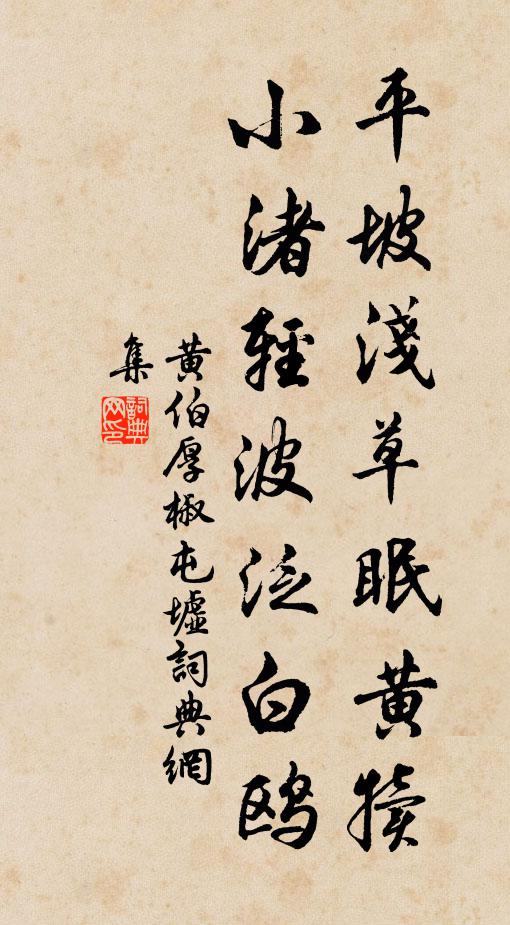 平坡淺草眠黄犢
小渚輕波泛白鷗
黄伯厚椒屯墟詞典網
集
詞典網印